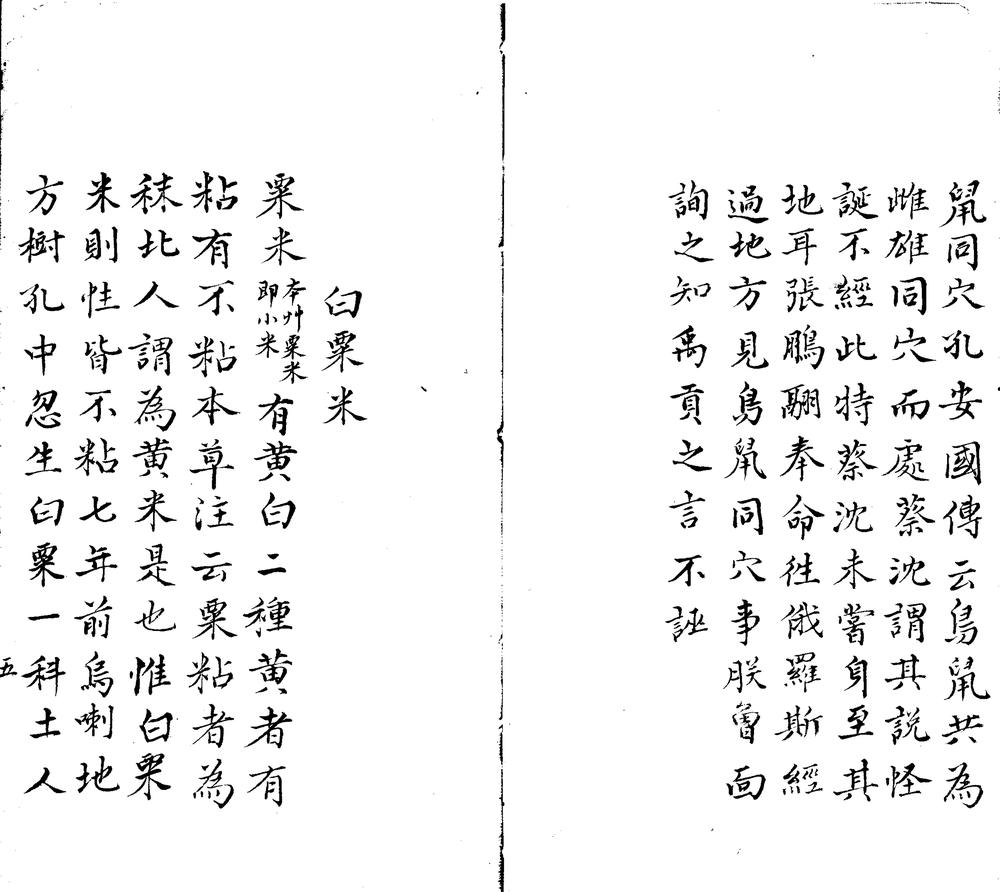 鼠同穴孔安國傳云鳥鼠共為
雌雄同穴而處蔡沈謂其說怪
誕不經此特蔡沈未嘗身至其
地耳張鵬翮奉命徃俄羅斯經
過地方見鳥鼠同穴事朕曾面
詢之知禹貢之言不誣
白粟米
粟米本艸粟米即小米有黄白二種黄者有
粘有不粘本草注云粟粘者為
秫北人謂為黄米是也惟白粟
米則性皆不粘七年前烏喇地
方樹孔中忽生白粟一科土人
五